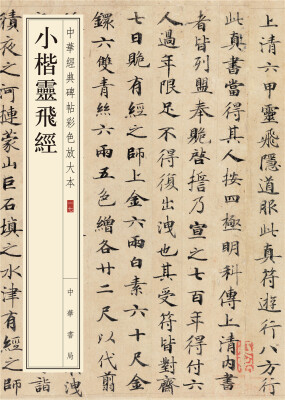 上清六甲靈飛隱道服此真符遊行八方行
此真書當得其人按四極明科傳上清內書
者皆列盟奉貺啓誓乃宣之七百年得付六
人過年限足不得復出洩也其受符皆對齋
七日貺有經之師上金六兩白素六十尺金
鐶六雙青絲六兩五色繒各廿二尺以代翦
中華經典碑帖彩色放大本
小楷靈飛經
中華書局
積夜之河搛蒙山巨石填之水津有經之